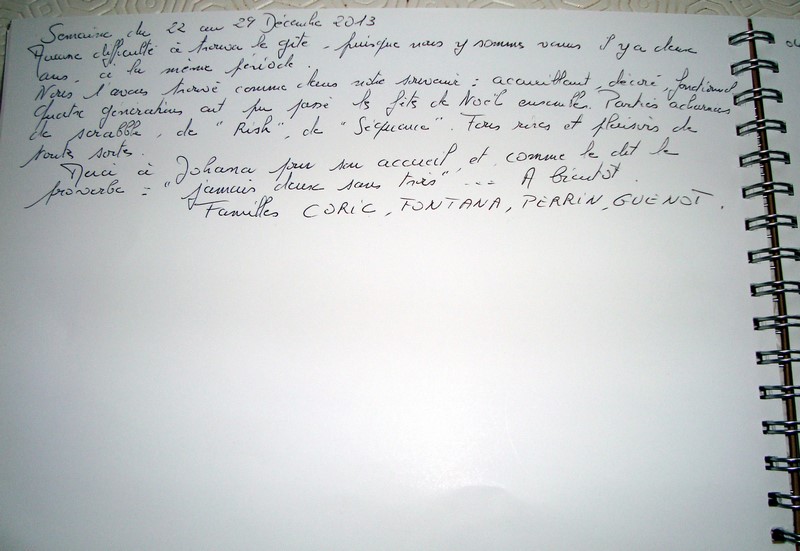 Semaine du 22 au 29 Décembre 2013
Aucune difficulté à trouver le gîte, puisque nous y sommes venus il y a deux
ans, à la même période.
Nous l'avons trouvé comme dans notre souvenir : accueillant, décoré, fonctionnel
Quatre générations ont pu passé les fêts de Noël ensembles. Parties acharnées
de scrabble, de "Risk", de "Séquence". Fous rires et plaisirs de
toutes sortes.
Merci à Johana pour son accueil, et comme le dit le
proverbe = "jamais deux sans trois" --- A bientôt.
Familles CORIC, FONTANA, PERRIN, GUENOT.